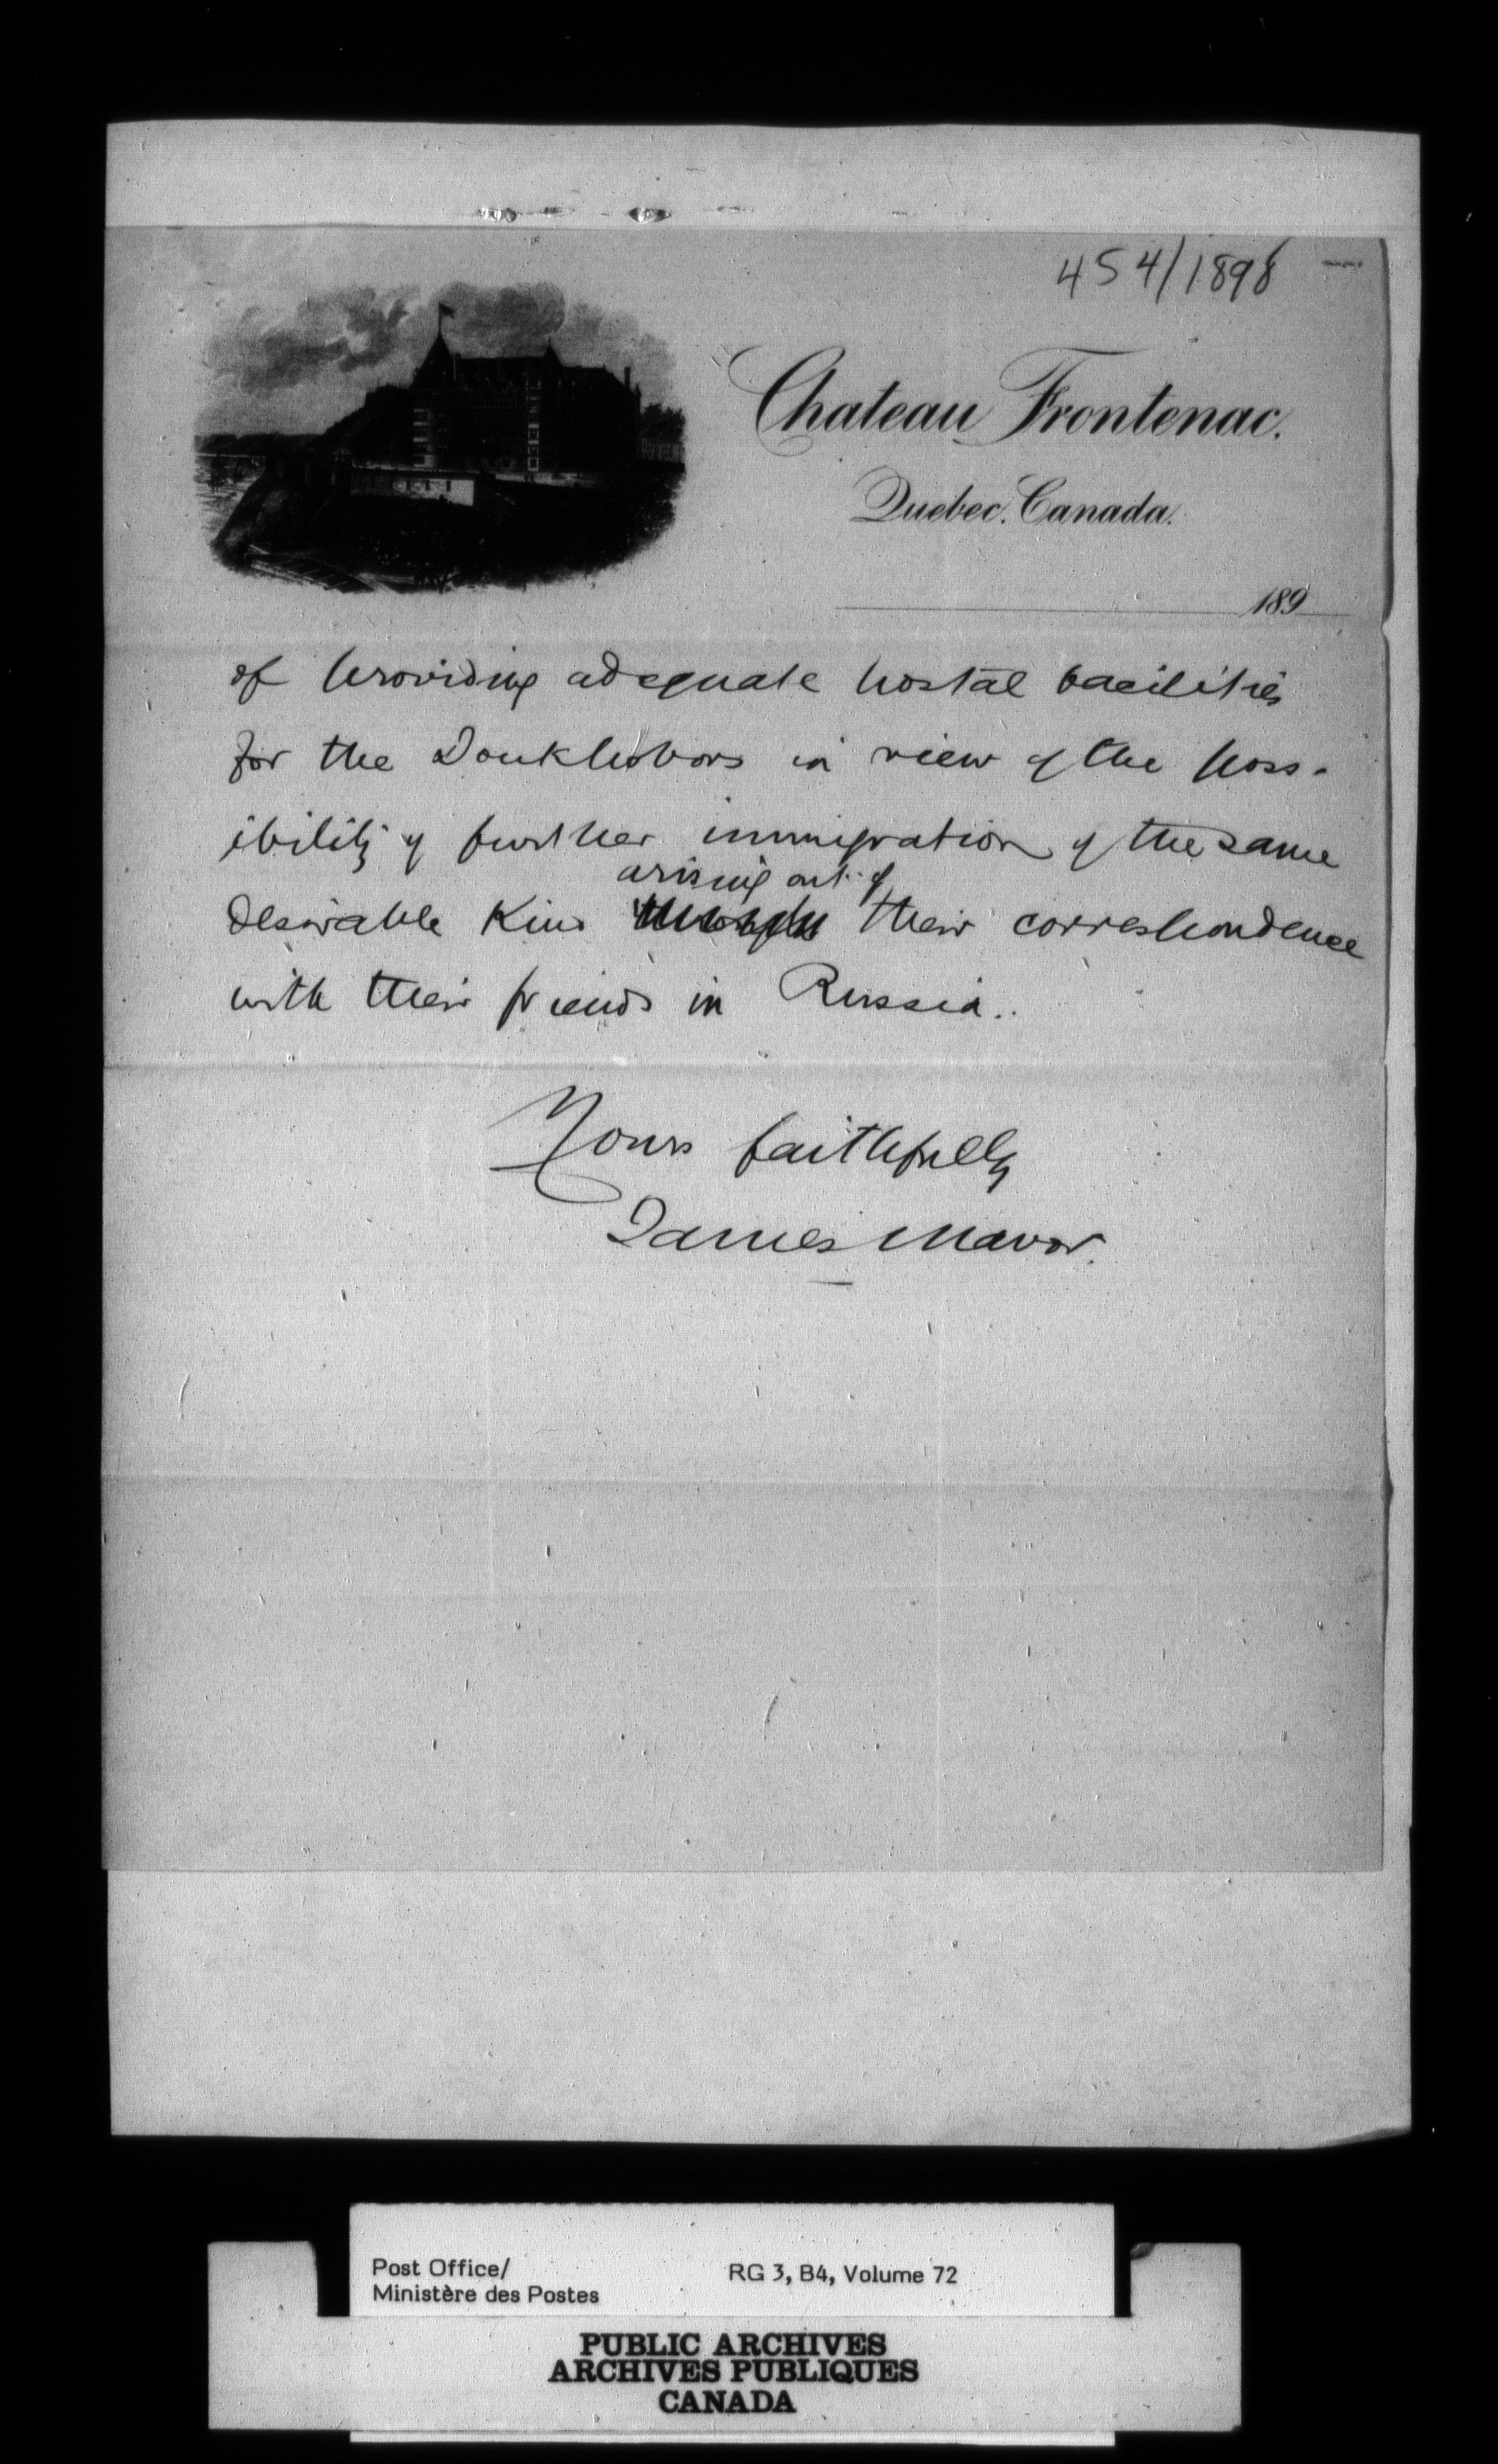 454/1898
Chateau Frontenac.
Quebec. Canada.
189
of providing adequate postal facilities
for the Doukhobors in view of the poss-
ibility of further immigration of the same
arising out of
desirable kind through their correspondence
with their friends in Russia..
Yours faithfully
James Mavor.
Post Office/
Ministère des Postes
RG 3, B4, Volume 72
PUBLIC ARCHIVES
ARCHIVES PUBLIQUES
CANADA